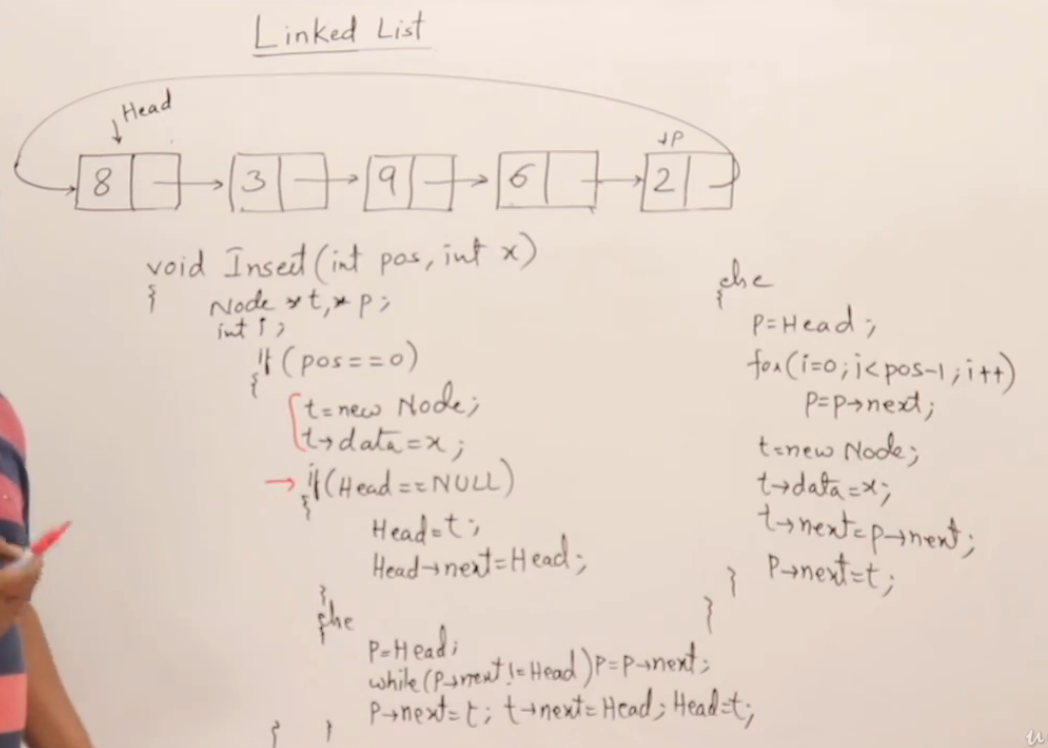 Linked List
Head
P
8 3 9 6 2
void Insert(int pos, int x)
{ Node *t,*p;
int i;
if(pos==0)
{
t=new Node;
t→data=x;
→ if(Head==NULL)
{
Head=t;
Head→next=Head;
}
else
{
P=Head;
while(P→next!=Head)P=P→next;
P→next=t; t→next=Head; Head=t;
} }
else
{
P=Head;
for(i=0;i<pos-1;i++)
P=P→next;
t=new Node;
t→data=x;
t→next=P→next;
P→next=t;
}
}
u